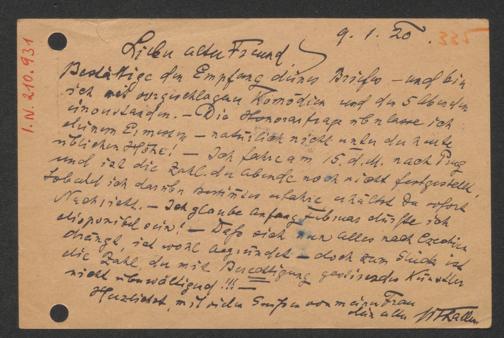 I.N. 210.931
9. 1. 20.
Lieber alter Freund,
Bestättige den Empfang deines Briefes – und bin
ich mit vorgeschlagenen Komödien und den 5 Abenden
einverstanden. – Die Honorarfrage überlasse ich
deinem Ermessen – natürlich nicht unter der heute
üblichen Höhe! – Ich fahre am 15. d. M. nach Prag
und ist die Zahl der Abende noch nicht festgestellt.
Sobald ich darüber erfahre erhältst du sofort
Nachricht. – Ich glaube Anfang Februar dürfte ich
disponibel sein! – Daß sich nun alles nach
drängt, ist wohl begründet – doch zum Glück ist
die Zahl der mit Berechtigung Künstler
nicht überwältigend!!! –
Herzlichst, mit vielen Grüßen von meiner Frau
dein alter Thaller